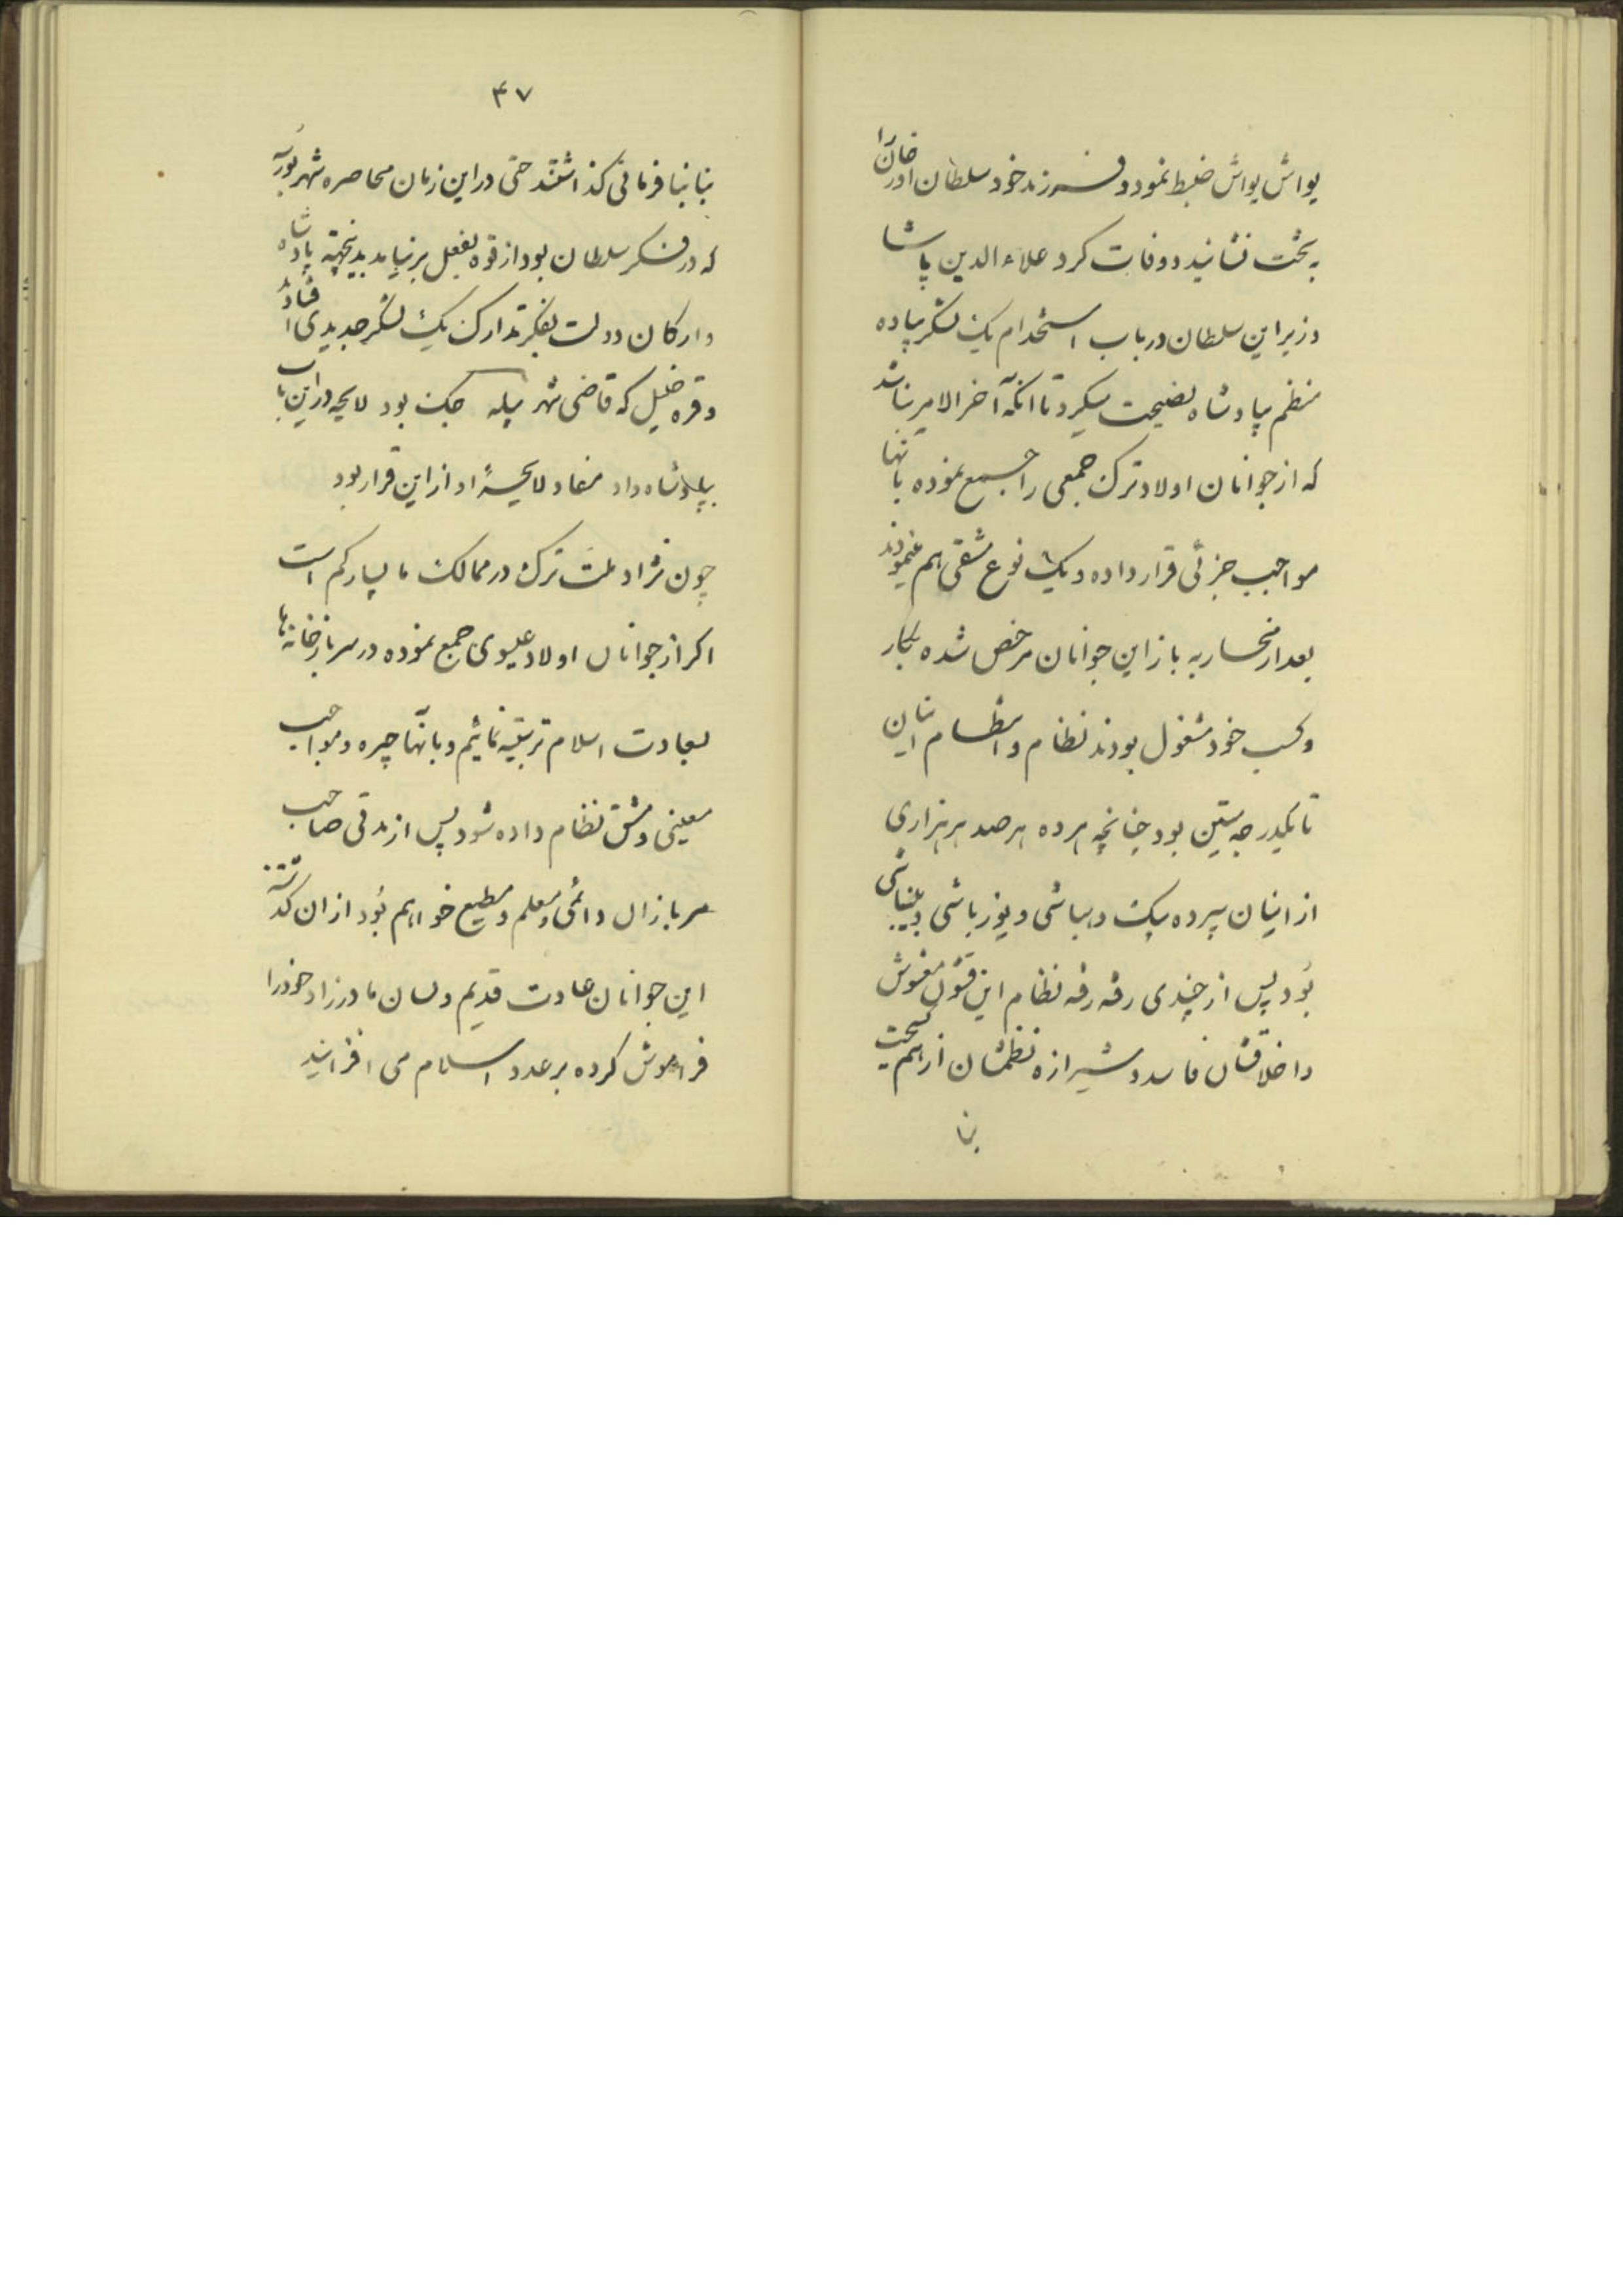 یواش یواش ضبط نمود و فرزند خود سلطان اورخان را
به تخت نشانید و وفات کرد علاءالدین پاشا
وزیر این سلطان در باب استخدام یک لشکر پیاده
منظم پادشاه نصیحت میکرد تا آنکه آخرالامر بنا شد
که از جوانان اولاد ترک جمعی را جمع نموده بانها
مواجب جزئی قرار داده و یک نوع مشقی هم مینمودند
بعد از محاربه باز این جوانان مرخص شده بکار
و کسب خود مشغول بودند نظام و انتظام اینان
تا بکدرجه متین بود چنانچه هر ده هر صد هر هزاری
از اینان سپرده یک ده‌باشی و یوزباشی و بینباشی
بود پس از چندی رفته رفته نظام این قشون مغشوش
و اخلاقشان فاسد و شیرازه نظمشان از هم گسیخت
بنا
۴۷
بنا بنافرمانی گذاشتند حتی در این زمان محاصره شهر
که در فکر سلطان بود از قوه بفعل بر نیامد بدینجهة پادشاه
و ارکان دولت بفکر تدارک یک لشکر جدیدی افتادند
و قره خلیل که قاضی شهر بیله جک بود لایحه در این باب
بپادشاه داد مفاد لایحهٔ او از این قرار بود
چون نژاد ملت ترک در ممالک ما بسیار کم است
اگر از جوانان اولاد عیسوی جمع نموده در سربازخانه‌ها
بعادت اسلام تربیه نمائیم و بانها جیره و مواجب
معینی و مشق نظام داده شود پس از مدتی صاحب
سربازان دائمی و معلم و مطیع خواهیم بود از ان گذشته
این جوانان عادت قدیم و لسان مادرزاد خود را
فراموش کرده بر عدد اسلام می افزایند